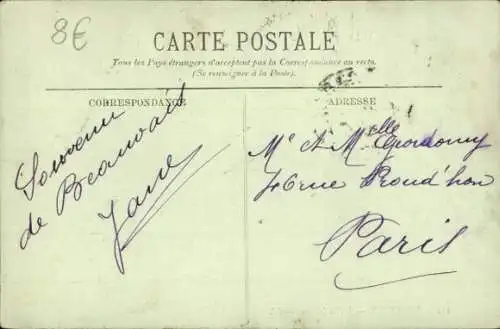 8€
CARTE POSTALE
Tous les Pays étrangers n'acceptent pas la Correspondance au recto.
(Se renseigner à la Poste).
CORRESPONDANCE
Souvenir
de Beauvais
Jane
ADRESSE
Me et Melle
rue Proud'hon
Paris